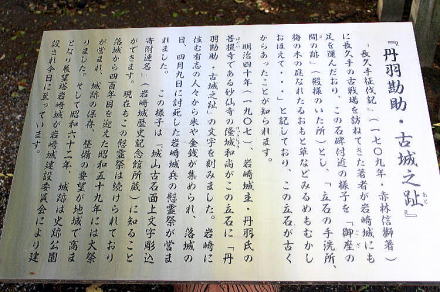 『丹羽勘助・古城之趾』
「長久手征伐記」(一七〇九・赤林信御著)
に長久手の古戦場を訪ねてきた著者が岩崎城にも
足を運んだおり、この石碑付近の様子を「御座の
間の跡」(殿様のいた所)とし、「立石の手洗所、
梅の木の庭なれたるおもと草などみるめもむかし
おほえて・・・」と記しており、この立石が古く
からあったことが知られます。
明治四十年(一九〇七)、岩崎城主・丹羽氏の
菩提寺である妙仙寺の俊城和尚がこの立石に「丹
羽勘助・古城之趾」の文字を刻みました。岩崎に
住む有志の人々から米や金銭が集められ、落城の
日、四月九日に討死した岩崎城兵の慰霊祭が営ま
れました。この様子は「城山古石面上文字彫込
寄附連名」(岩崎城歴史記念館所蔵)に知ること
ができます。現在もこの慰霊祭は続けられており
落城から四百年目を迎えた昭和五十九年には大祭
が営まれ、城跡の保存、整備の要望が地域で高ま
りました。そして昭和六十二年、城跡は史跡公園
となり展望塔岩崎城が岩崎城建設委員会により建
設され今日に至っています。